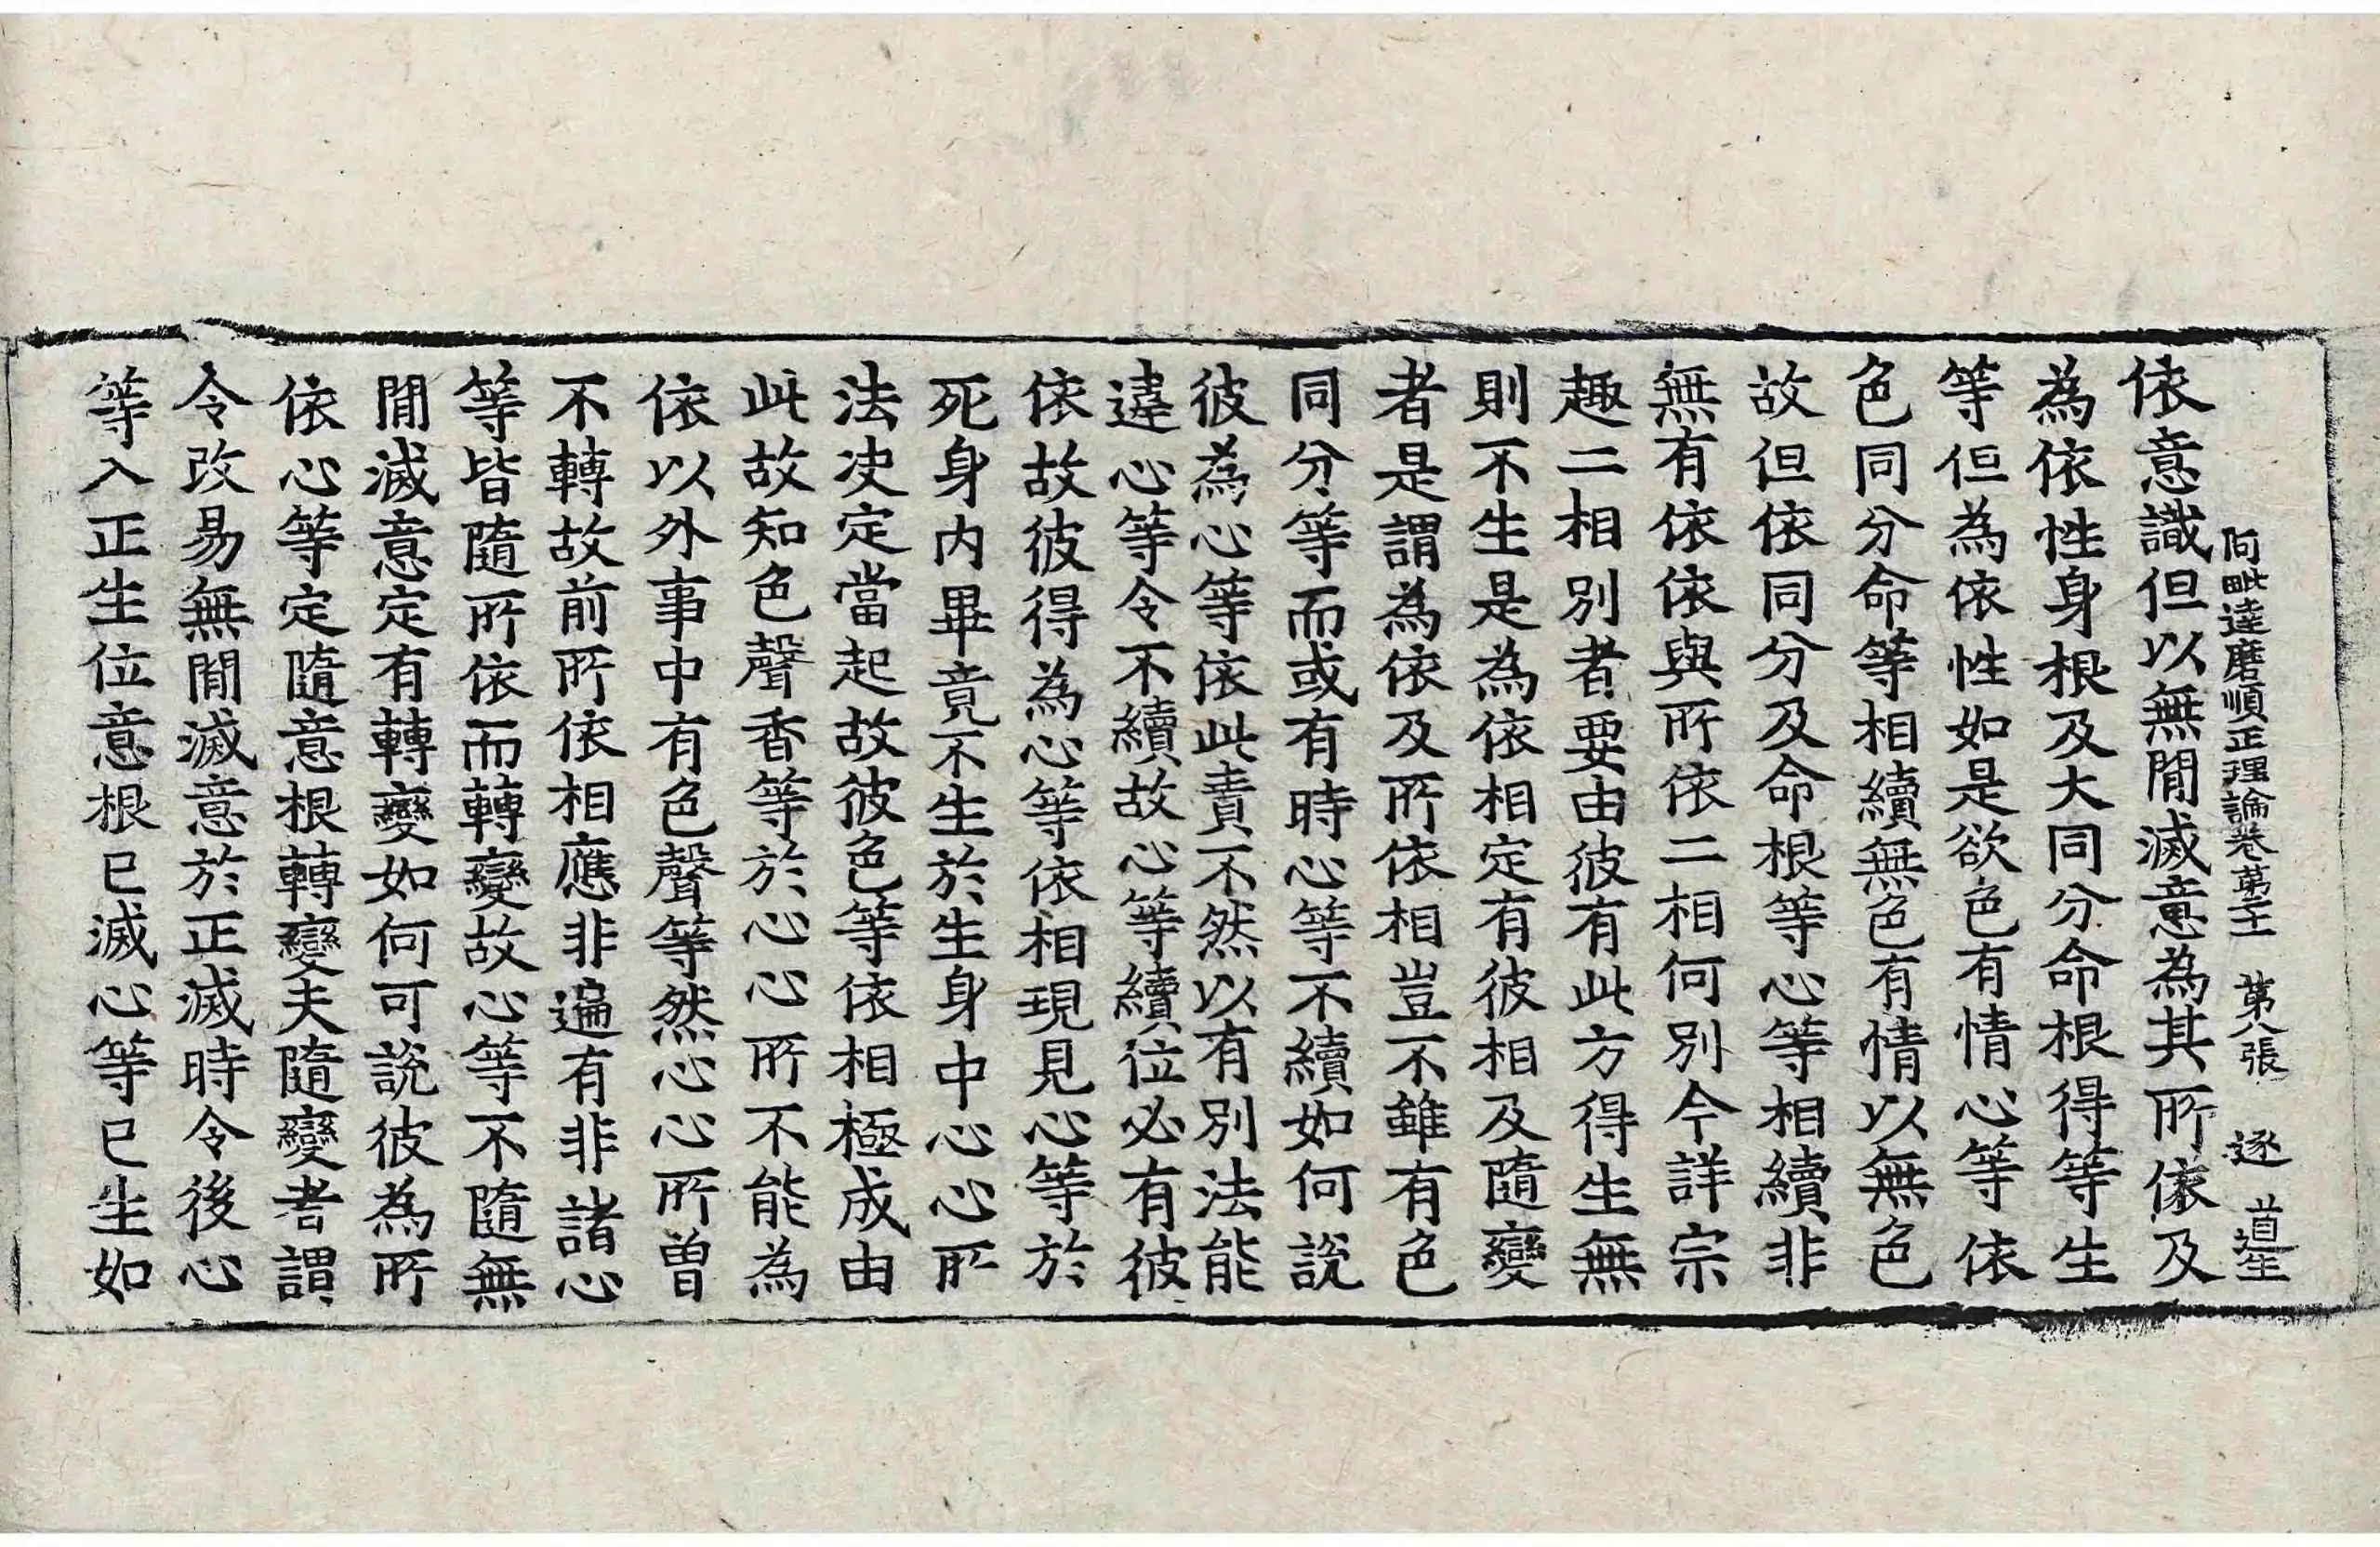 阿毗達磨順正理論卷第二十 第八張 逐 道生
依意識但以無閒滅意為其所依及
為依性身根及大同分命根得等生
等但為依性如是欲色有情心等依
色同分命等相續無色有情以無色
故但依同分及命根等心等相續非
無有依依與所依二相何別今詳宗
趣二相別者要由彼有此方得生無
則不生是為依相定有彼相及隨變
者是謂為依及所依相豈不雖有色
同分等而或有時心等不續如何說
彼為心等依此責不然以有別法能
違心等令不續故心等續位必有彼
依故彼得為心等依相現見心等於
死身內畢竟不生於生身中心心所
法决定當起故彼色等依相極成由
此故知色聲香等於心心所不能為
依以外事中有色聲等然心心所曾
不轉故前所依相應非遍有非諸心
等皆隨所依而轉變故心等不隨無
閒滅意定有轉變如何可說彼為所
依心等定隨意根轉變夫隨變者謂
令改易無閒滅意於正滅時令後心
等入正生位意根已滅心等已生如